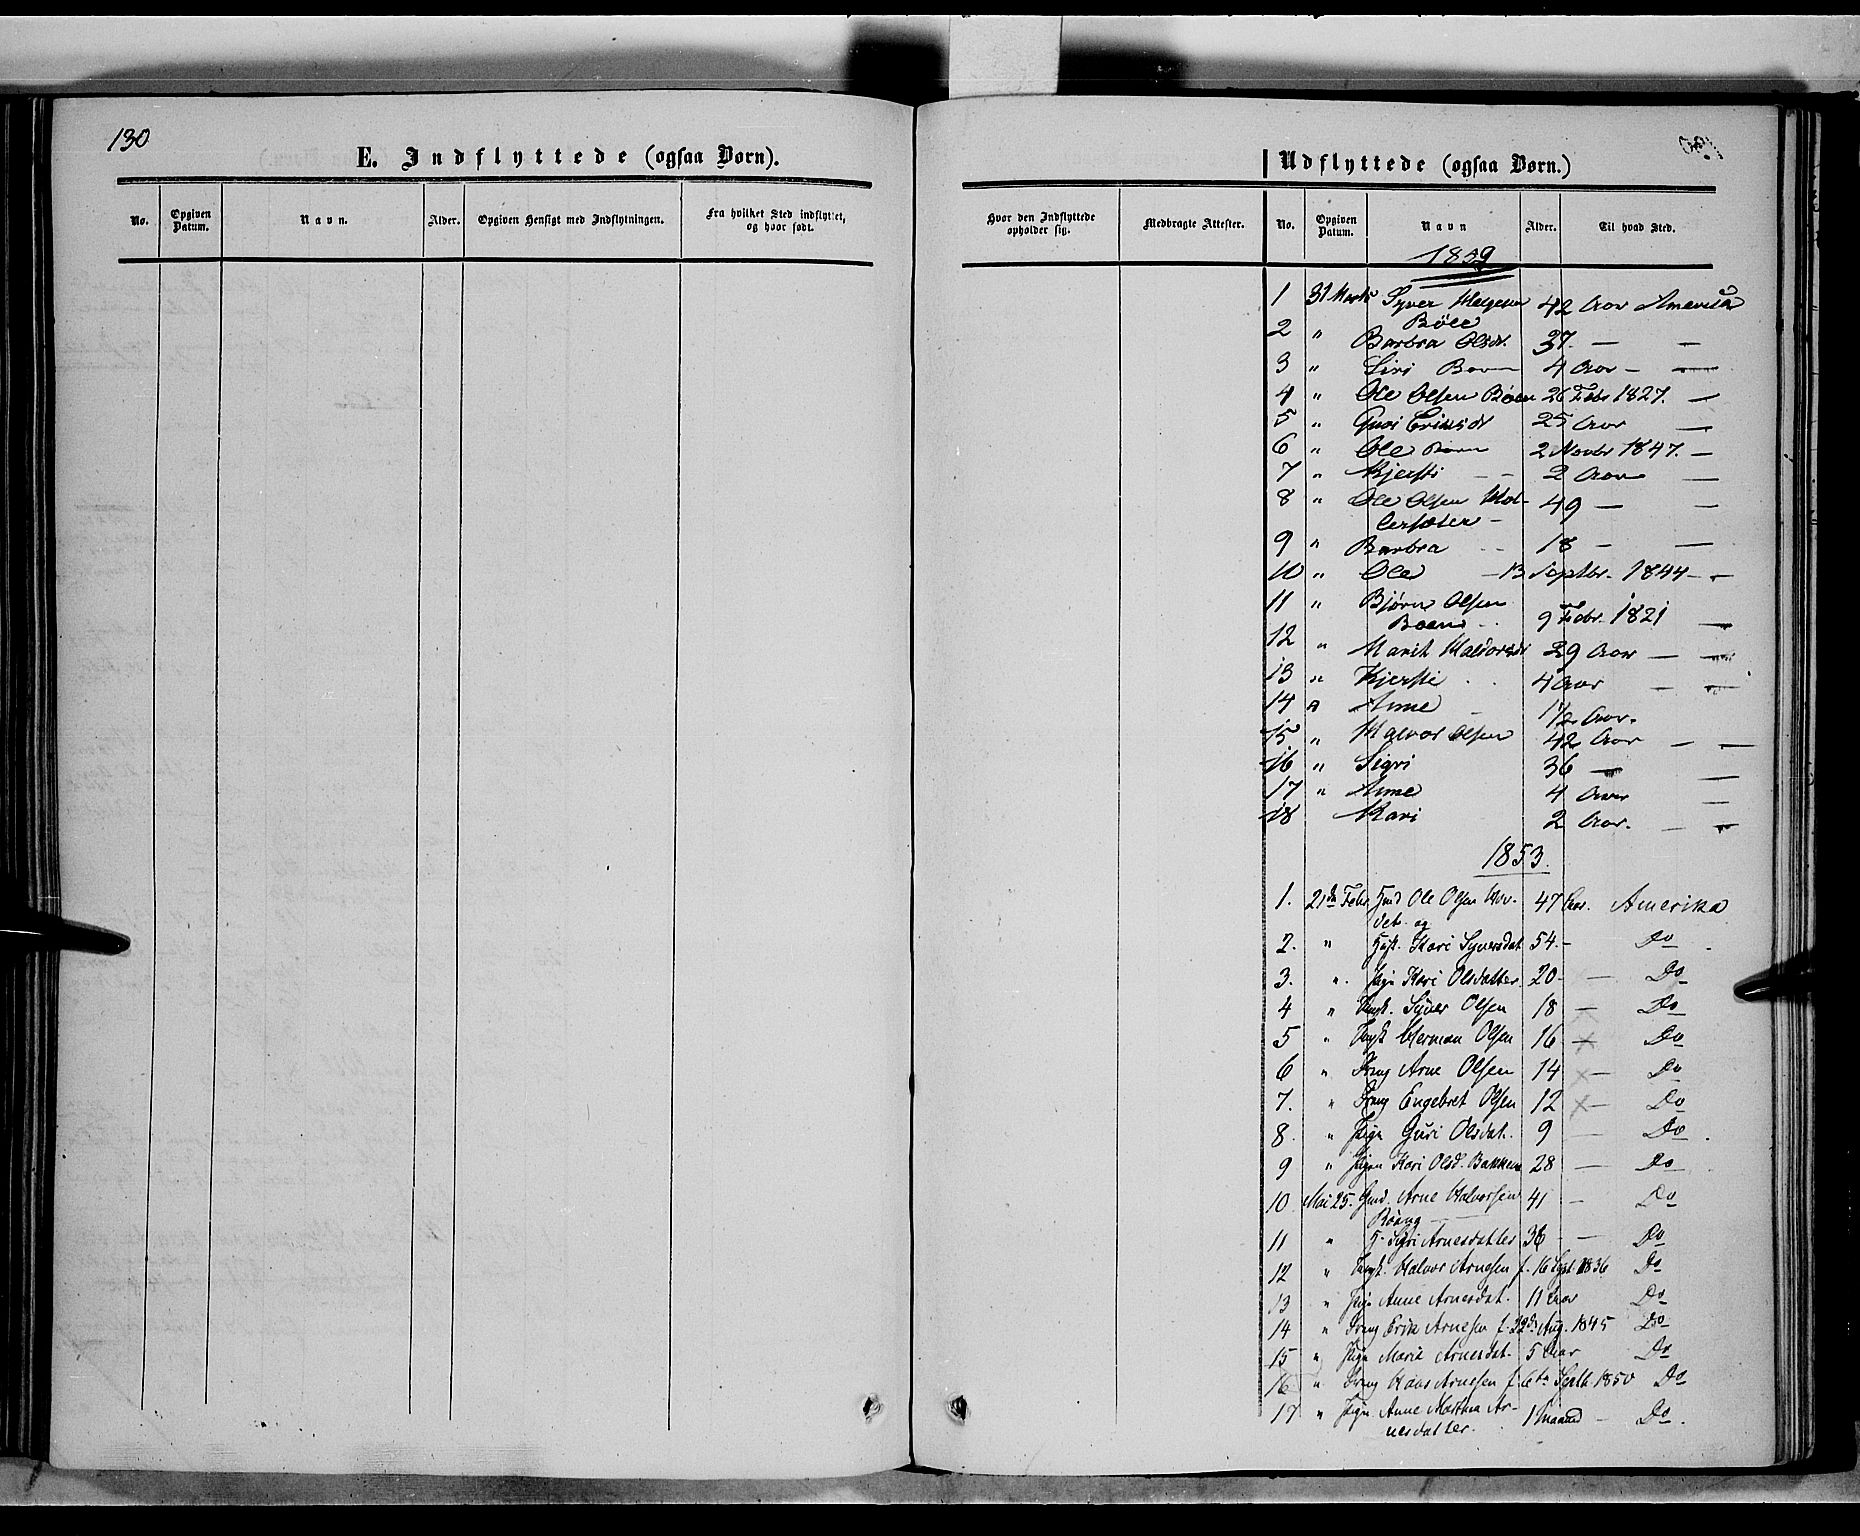 130
E. Indflyttede (ogsaa Børn).
No.
Opgiven Datum.
Navn.
Alder.
Opgiven Hensigt med Indflytningen.
Fra hvilket Sted indflyttet, og hvor født.
Udflyttede (ogsaa Børn.)
Hvor den Indflyttede opholder sig.
Medbragte Attester.
No.
Opgiven Datum.
Navn
Alder.
Til hvad Sted.
1859
1 31 Marts Syver Helgesen 42 Aar Amerika
Böle
2 " Barbra Olsdr. 37. — —
3 " Siri Barn 4 Aar — —
4 " Ole Olsen Böen 26 Febr 1827. —
5 " Guri Eriksdr 25 Aar —
6 " Ole Barn 2 Novbr 1847. —
7 " Kjersti — 2 Aar —
8 " Ole Olsen 49 — —
9 " Barbra 18 — —
10 " Ole — 13 Septbr. 1844 — —
11 " Bjørn Olsen
Boen 9 Febr. 1821 —
12 " Marit Halvorsdr 29 Aar — —
13 " Kjersti 4 Aar — —
14 " Anne 1½ Aar.
15 " Halvor Olsen 42 Aar — —
16 " Sigri 36 — —
17 " Anne 4 Aar —
18 Kari 2 Aar. — —
1853.
1. 21de Febr. Gmd Ole Olsen Hov- 47 Aar. Amerika
det og
2. " Kari Syversdat 54. — Do
3. " Pige Kari Olsdatter 20 — Do
4 " Ungk. Syver Olsen 18 — Do
5 " Ungk Herman Olsen 16 — Do
6 " Dreng Arne Olsen 14 — Do
7. " Dreng Engebret Olsen 12 — Do
8. " Pige Guri Olsdat. 9 — Do
9 " Pigen Kari Olsd. Bakken 28 — Do
10 Mai 25. Gmd. Arne Halvorsen 41 — Do
11 " K. Sigri Arnesdatter 36 — Do
12 " Ungk. Halvor Arnesen f. 16 Sept. 1836 Do
13 " Pige Anne Arnesdat. 11 Aar Do
14 " Dreng Erik Arnesen f. 22de Aug. 1845 Do
15 " Pige Marit Arnesdat. 5 Aar Do
16 " Dreng Hans Arnesen f. 6te Septb. 1850 Do
17 " Pige Anne Martha Ar- 1 Maaned — Do.
nesdatter.